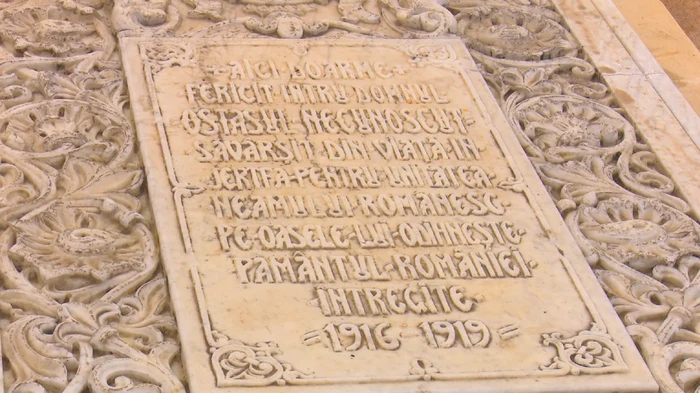 AICI DOARME
FERICIT ÎNTRU DOMNUL
OSTAȘUL NECUNOSCUT
SĂVÂRȘIT DIN VIAȚA ÎN
JERTFA PENTRU UNITATEA
NEAMULUI ROMÂNESC
PE OASELE LUI ODIHNEȘTE
PĂMÂNTUL ROMÂNIEI
ÎNTREGITE
=1916-1919=